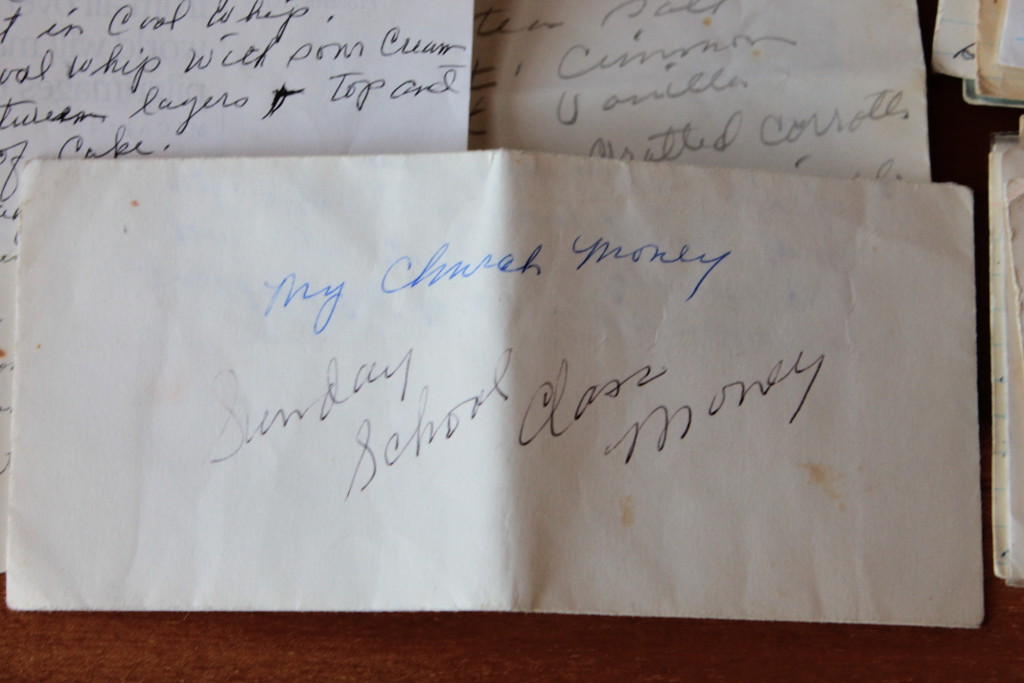 t in Cool Whip.
Whip with sour cream
layers Top and
of Cake.
Salt
Cinnmon
Vanilla
Gratted Corrotts
My Church Money
Sunday
School Class
Money